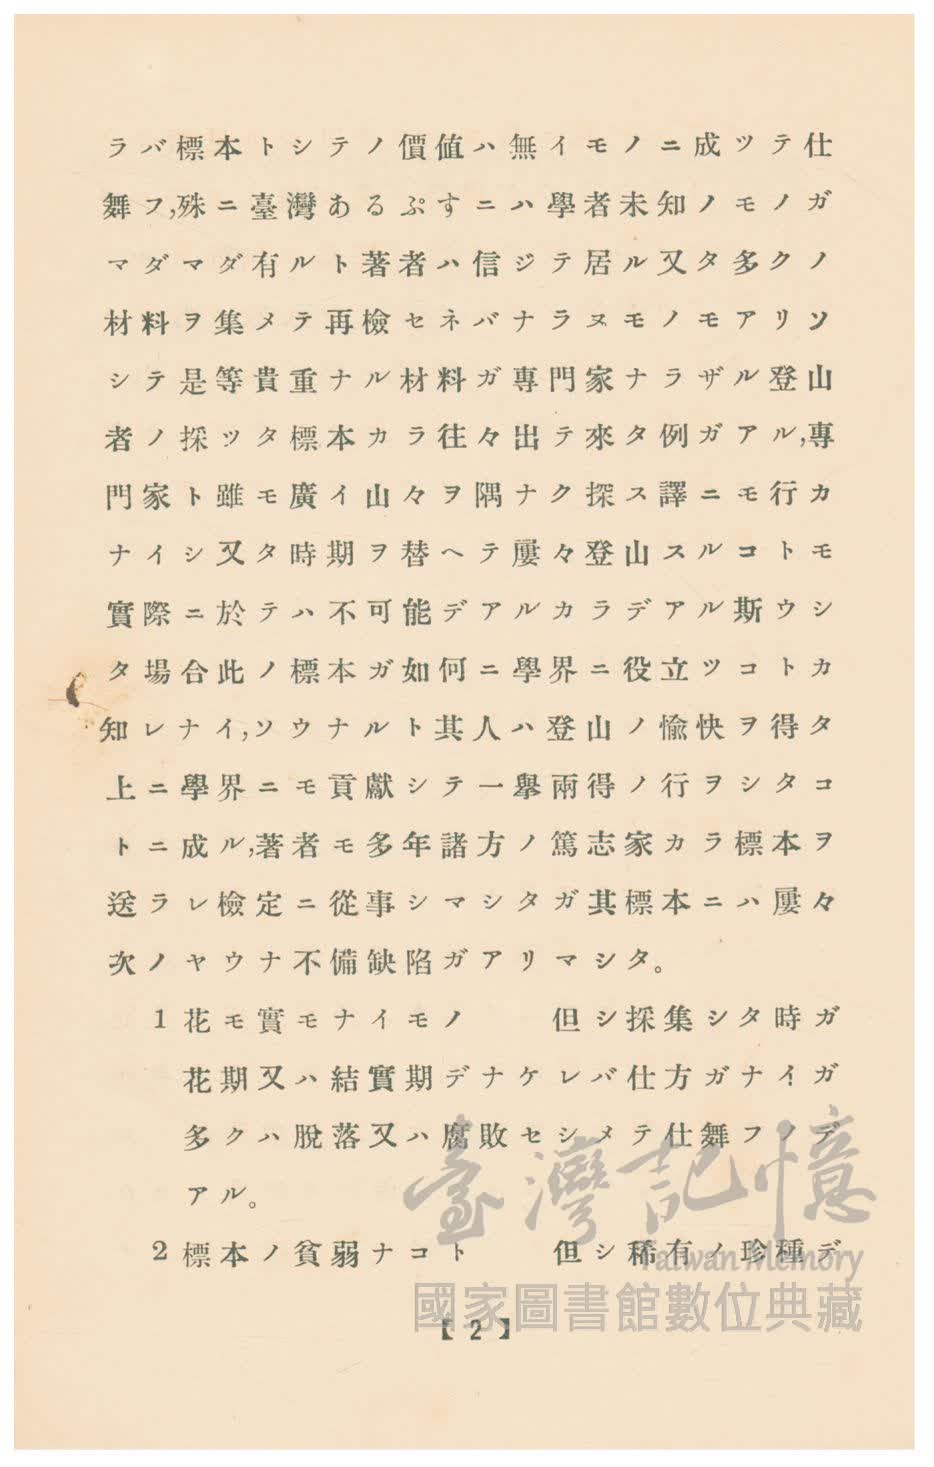 ラバ標本トシテノ價値ハ無イモノニ成ツテ仕
舞フ,殊ニ臺灣あるぷすニハ學者未知ノモノガ
マダマダ有ルト著者ハ信ジテ居ル又タ多クノ
材料ヲ集メテ再檢セネバナラヌモノモアリソ
シテ是等貴重ナル材料ガ專門家ナラザル登山
者ノ採ッタ標本カラ往々出テ來タ例ガアル,專
門家ト雖モ廣イ山々ヲ隅ナク探ス譯ニモ行カ
ナイシ又タ時期ヲ替ヘテ屢々登山スルコトモ
實際ニ於テハ不可能デアルカラデアル斯ウシ
タ場合此ノ標本ガ如何ニ學界ニ役立ツコトカ
知レナイ,ソウナルト其人ハ登山ノ愉快ヲ得タ
上ニ學界ニモ貢獻シテ一擧兩得ノ行ヲシタコ
トニ成ル,著者モ多年諸方ノ篤志家カラ標本ヲ
送ラレ檢定ニ從事シマシタガ其標本ニハ屢々
次ノヤウナ不備缺陷ガアリマシタ。
1 花モ實モナイモノ　但シ採集シタ時ガ
花期又ハ結實期デナケレバ仕方ガナイガ
多クハ脫落又ハ腐敗セシメテ仕舞フノデ
アル。
2 標本ノ貧弱ナコト　但シ稀有ノ珍種デ
臺灣記憶
Taiwan Memory
國家圖書館數位典藏
【2】